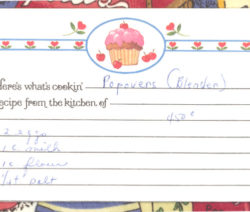 Here's what's cookin' Popovers (Blender)
recipe from the kitchen of
450°
2 eggs
1 c milk
1 c flour
1/4 t salt